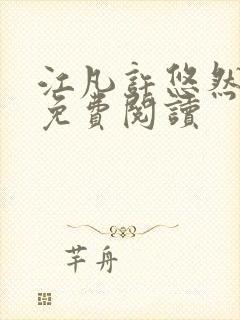 江凡許悠然
免費閱讀
芊舟